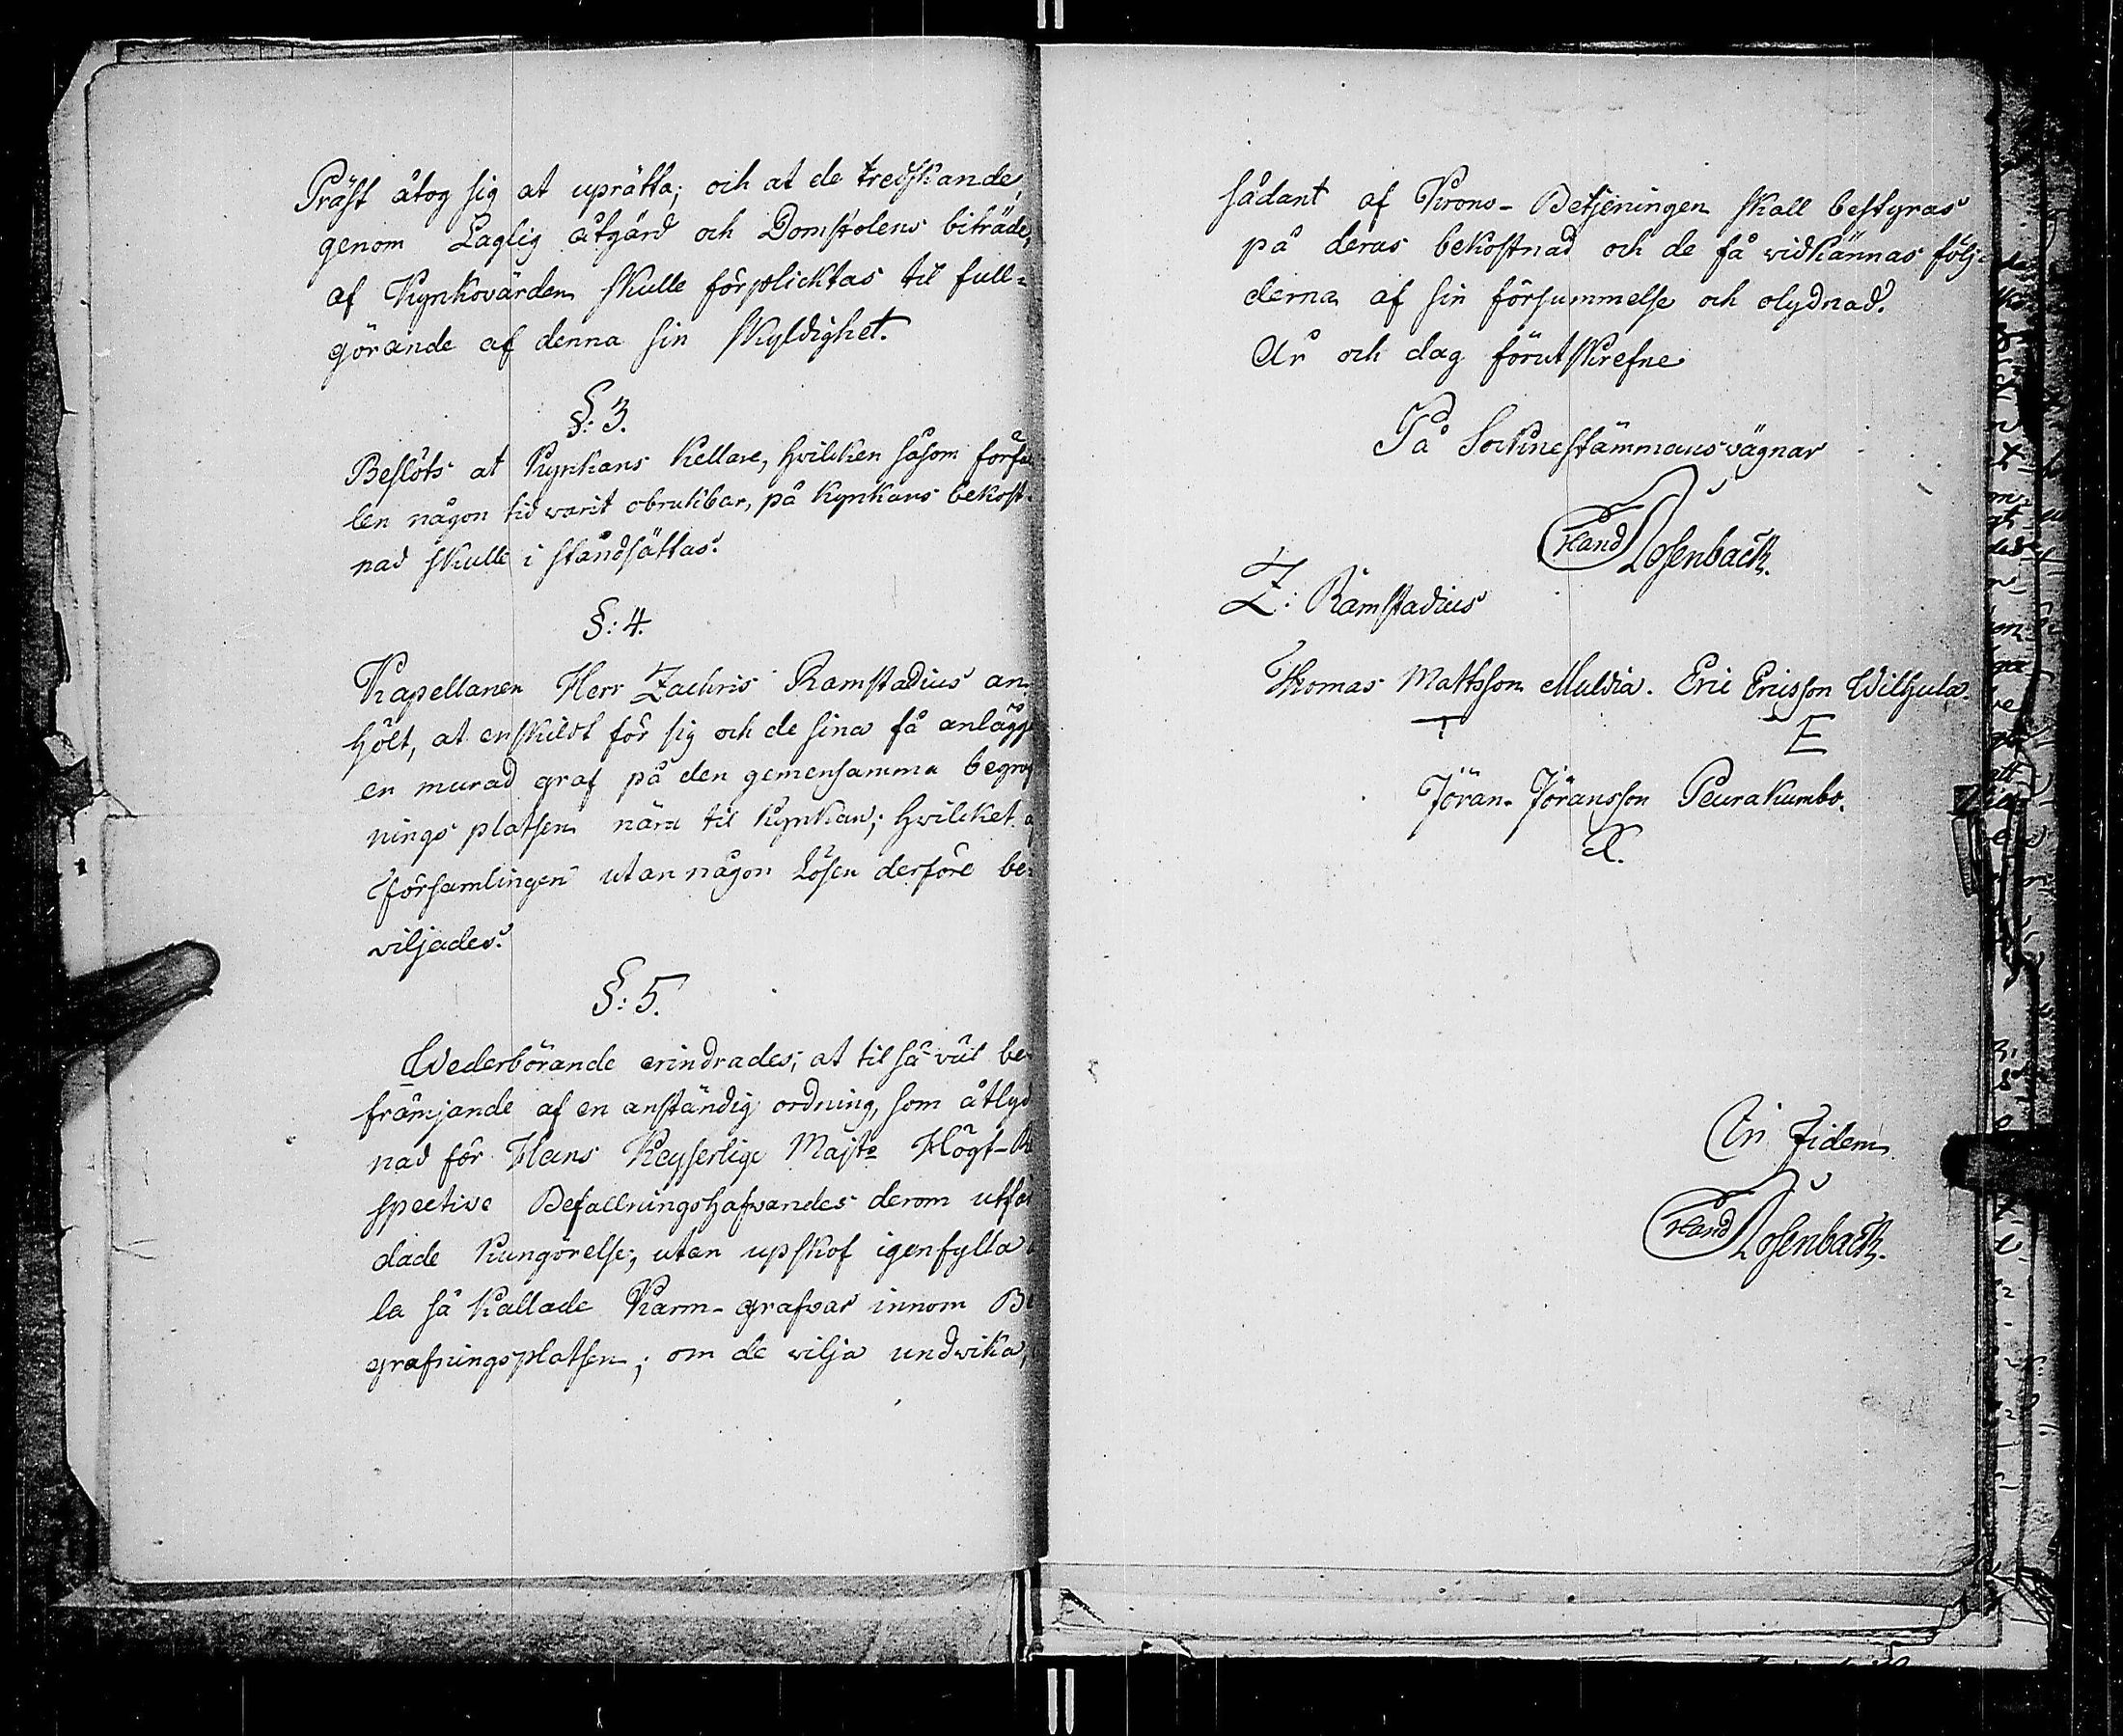 Präst åtog sig at uprätta; och at de tredskande,
genom Laglig åtgärd och Domstolens biträde,
af Kyrkovärden skulle förplicktas til full-
görande af denna sin skyldighet.
§: 3.
Beslöts at Kyrkans Kellare, hvilcken såsom förfal
len någon tid warit obrukbar, på Kyrkans bekost-
nad skulle i ståndsättas.
§: 4.
Kapellanen Herr Zachris Ramstadius an-
hölt, at enskildt för sig och de sina få anlägga
en murad graf på den gemensamma begraf
nings platsen nära til Kyrkan; hvilcket a
församlingen utan någon Lösen derföre be-
viljades.
§: 5.
Wederbörande erindrades; at til så väl be-
främjande af en anständig ordning, som åtlyd
nad för Hans Keyserlige Majsts Högt-Re
spective Befallningshafvandes derom utfär
dade Kungörelse; utan upskof igenfylla a
la så Kallade Karm-grafvar innom Be
grafningsplatsen; om de vilja undvika,
sådant af Krono-Betjeningen skall bestyras
på deras bekostnad och de få vidkännas följ-
derna af sin försummelse och olydnad.
År och dag förutskrefne
På Socknestämmans vägnar
Rosenback.
Z: Ramstadius
Thomas Mattsson Muldia. Eric Ericsson Wilhula.
T E
Jöran Jöransson Peurakumbo.
In Fidem
Rosenback.